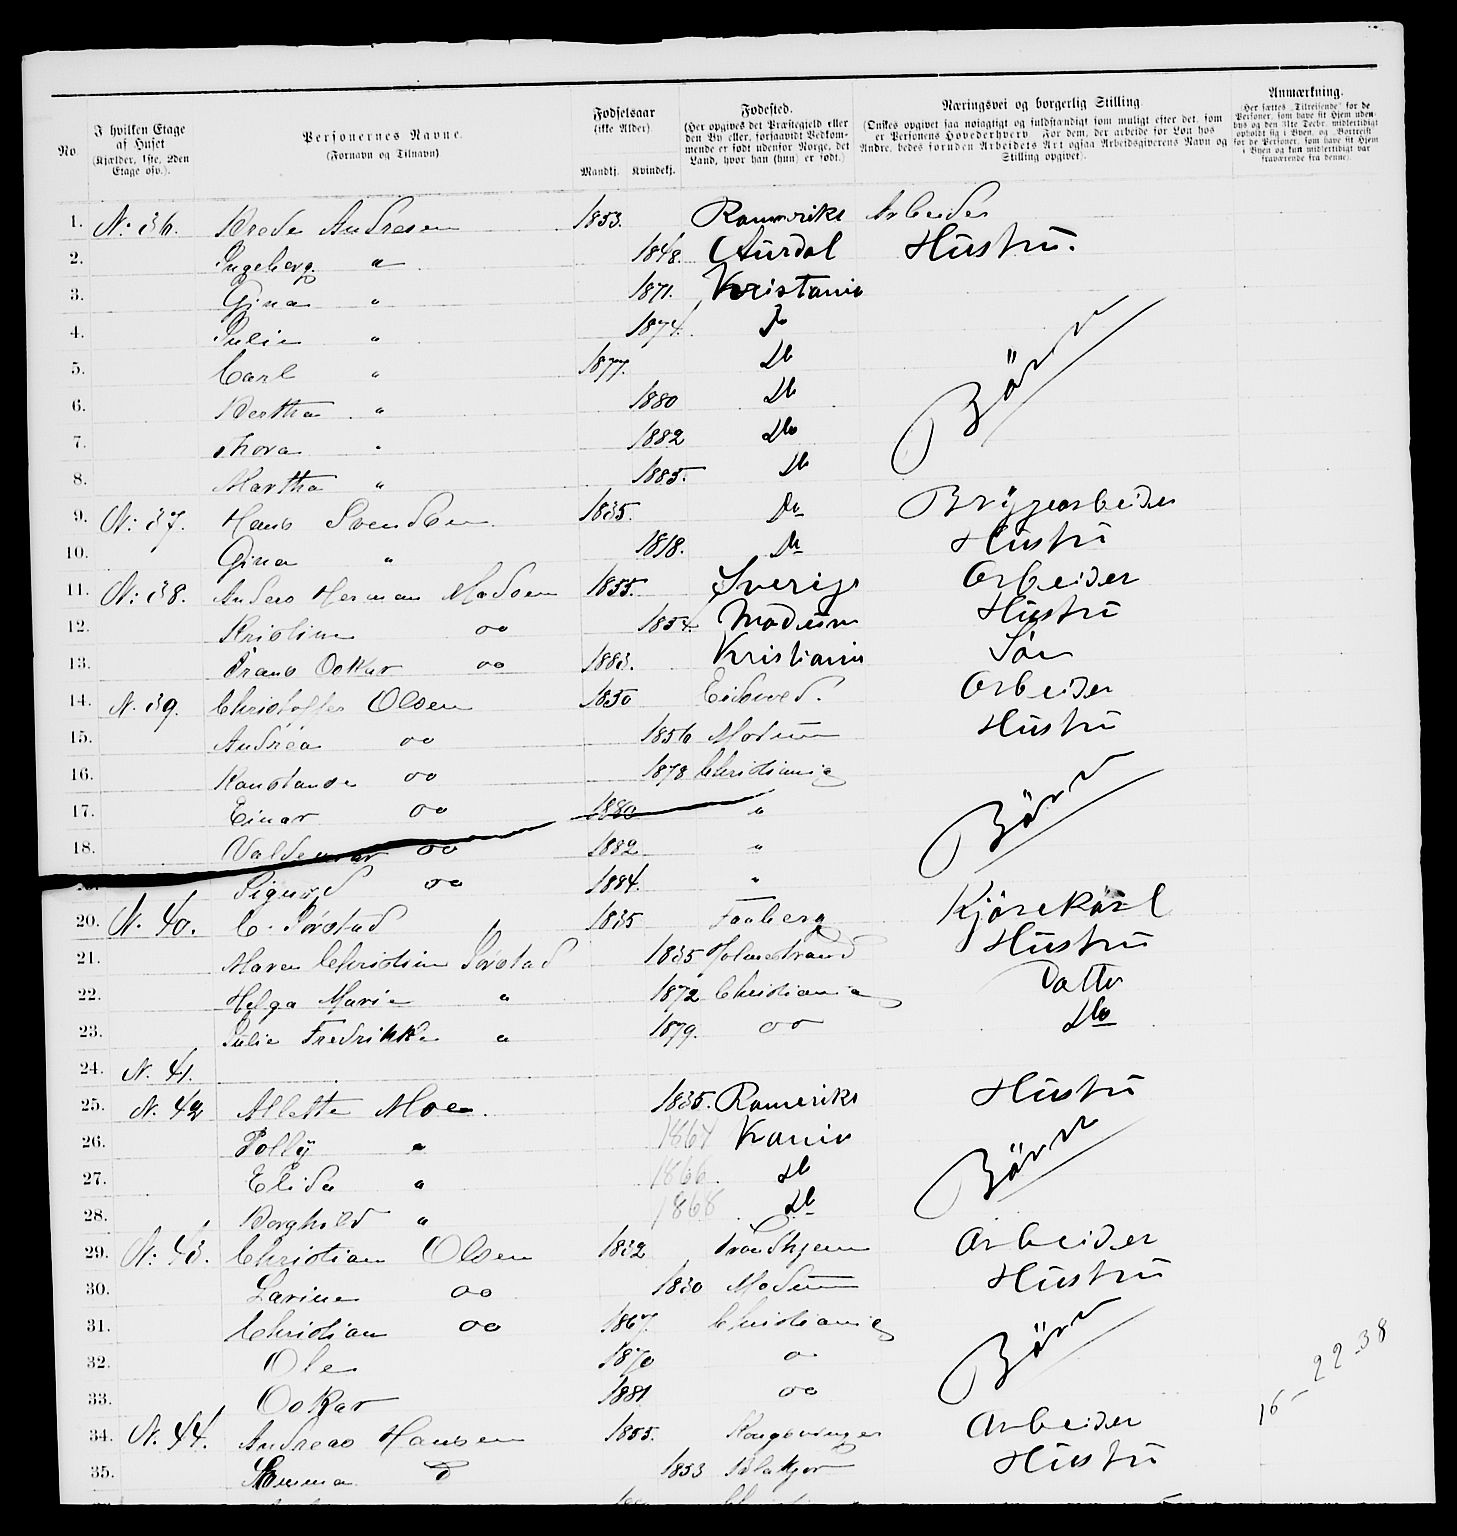 No
I hvilken Etage af Huset (Kjælder, 1ste, 2den Etage osv.).
Personernes Navne. (Fornavn og Tilnavn)
Fødselsaar (ikke Alder)
Mandkj. Kvindekj.
Fødested. (Her opgives det Præstegjeld eller den By eller, forsaavidt Vedkommende er født udenfor Norge, det Land, hvor han (hun) er født.)
Næringsvei og borgerlig Stilling (Ønskes opgivet saa nøiagtigt og fuldstændigt som muligt efter det, som er Personens Hovederhverv For dem, der arbeide for Løn hos Andre, bedes foruden Arbeidets Art ogsaa Arbeidsgiverens Navn og Stilling opgivet).
Anmærkning. (Her sættes „Tilreisende" for de Personer, som have sit Hjem udenbys og den 31te Decbr. midlertidigt opholdt sig i Byen, og „Bortreist" for de Personer, som have sit Hjem i Byen og kun midlertidigt var fraværende fra denne).
1. N. 36. Andresen 1853. Romerike Arbeider
2. Ingeborg " 1848. Aurdal Hustru.
3. Gina " 1871. Kristania
4. Julie " 1874. Do
5. Carl " 1877. Do
6. Bertha " 1880 Do
7. Thora " 1882 Do
8. Martha " 1885. Do
Börn
9. N: 37. Hans Svendsen 1835. Do Bryggearbeider
10. Gina " 1818. Do Hustru
11. N: 38. Anders Herman Madsen 1855. Sverige Arbeider
12. Kristine oo 1854. Modum Hustru
13. Frans Oskar oo 1883. Kristiania Sön
14. N. 39. Christoffer Olsen 1850 Eidsvod. Arbeider
15. Andrea oo 1856 Modum Hustru
16. Konstanse oo 1878 Christiania
17. Einar oo 1880 "
18. Valdemar oo 1882 "
Sigurd oo 1884. "
Börn
20. N. 40. C. Sörstad 1835 Faaberg Kjörekarl
21. Maren Christine Sörstad 1835 Holmestrand Hustru
22. Helga Marie " 1872 Christiania Datter
23. Julie Fredrikke " 1879. oo Do
24. N. 41.
25. N. 42 Allette Moe. 1835. Romerike Hustru
26. Polly " 1864 Krania
27. Elida " 1866 Do
28. Borghild " 1868 Do
Börn
29. N: 43. Christian Olsen 1832 Trondhjem Arbeider
30. Larine oo 1830 Modum Hustru
31. Christian oo 1867. Christiania
32. Ole 1870 o
33. Oskar 1881 oo
Börn
16 - 22 - 38
34. N. 44. Andreas Hansen 1855. Kongsvinger Arbeider
35. Emma D 1853 Blakjer Hustru